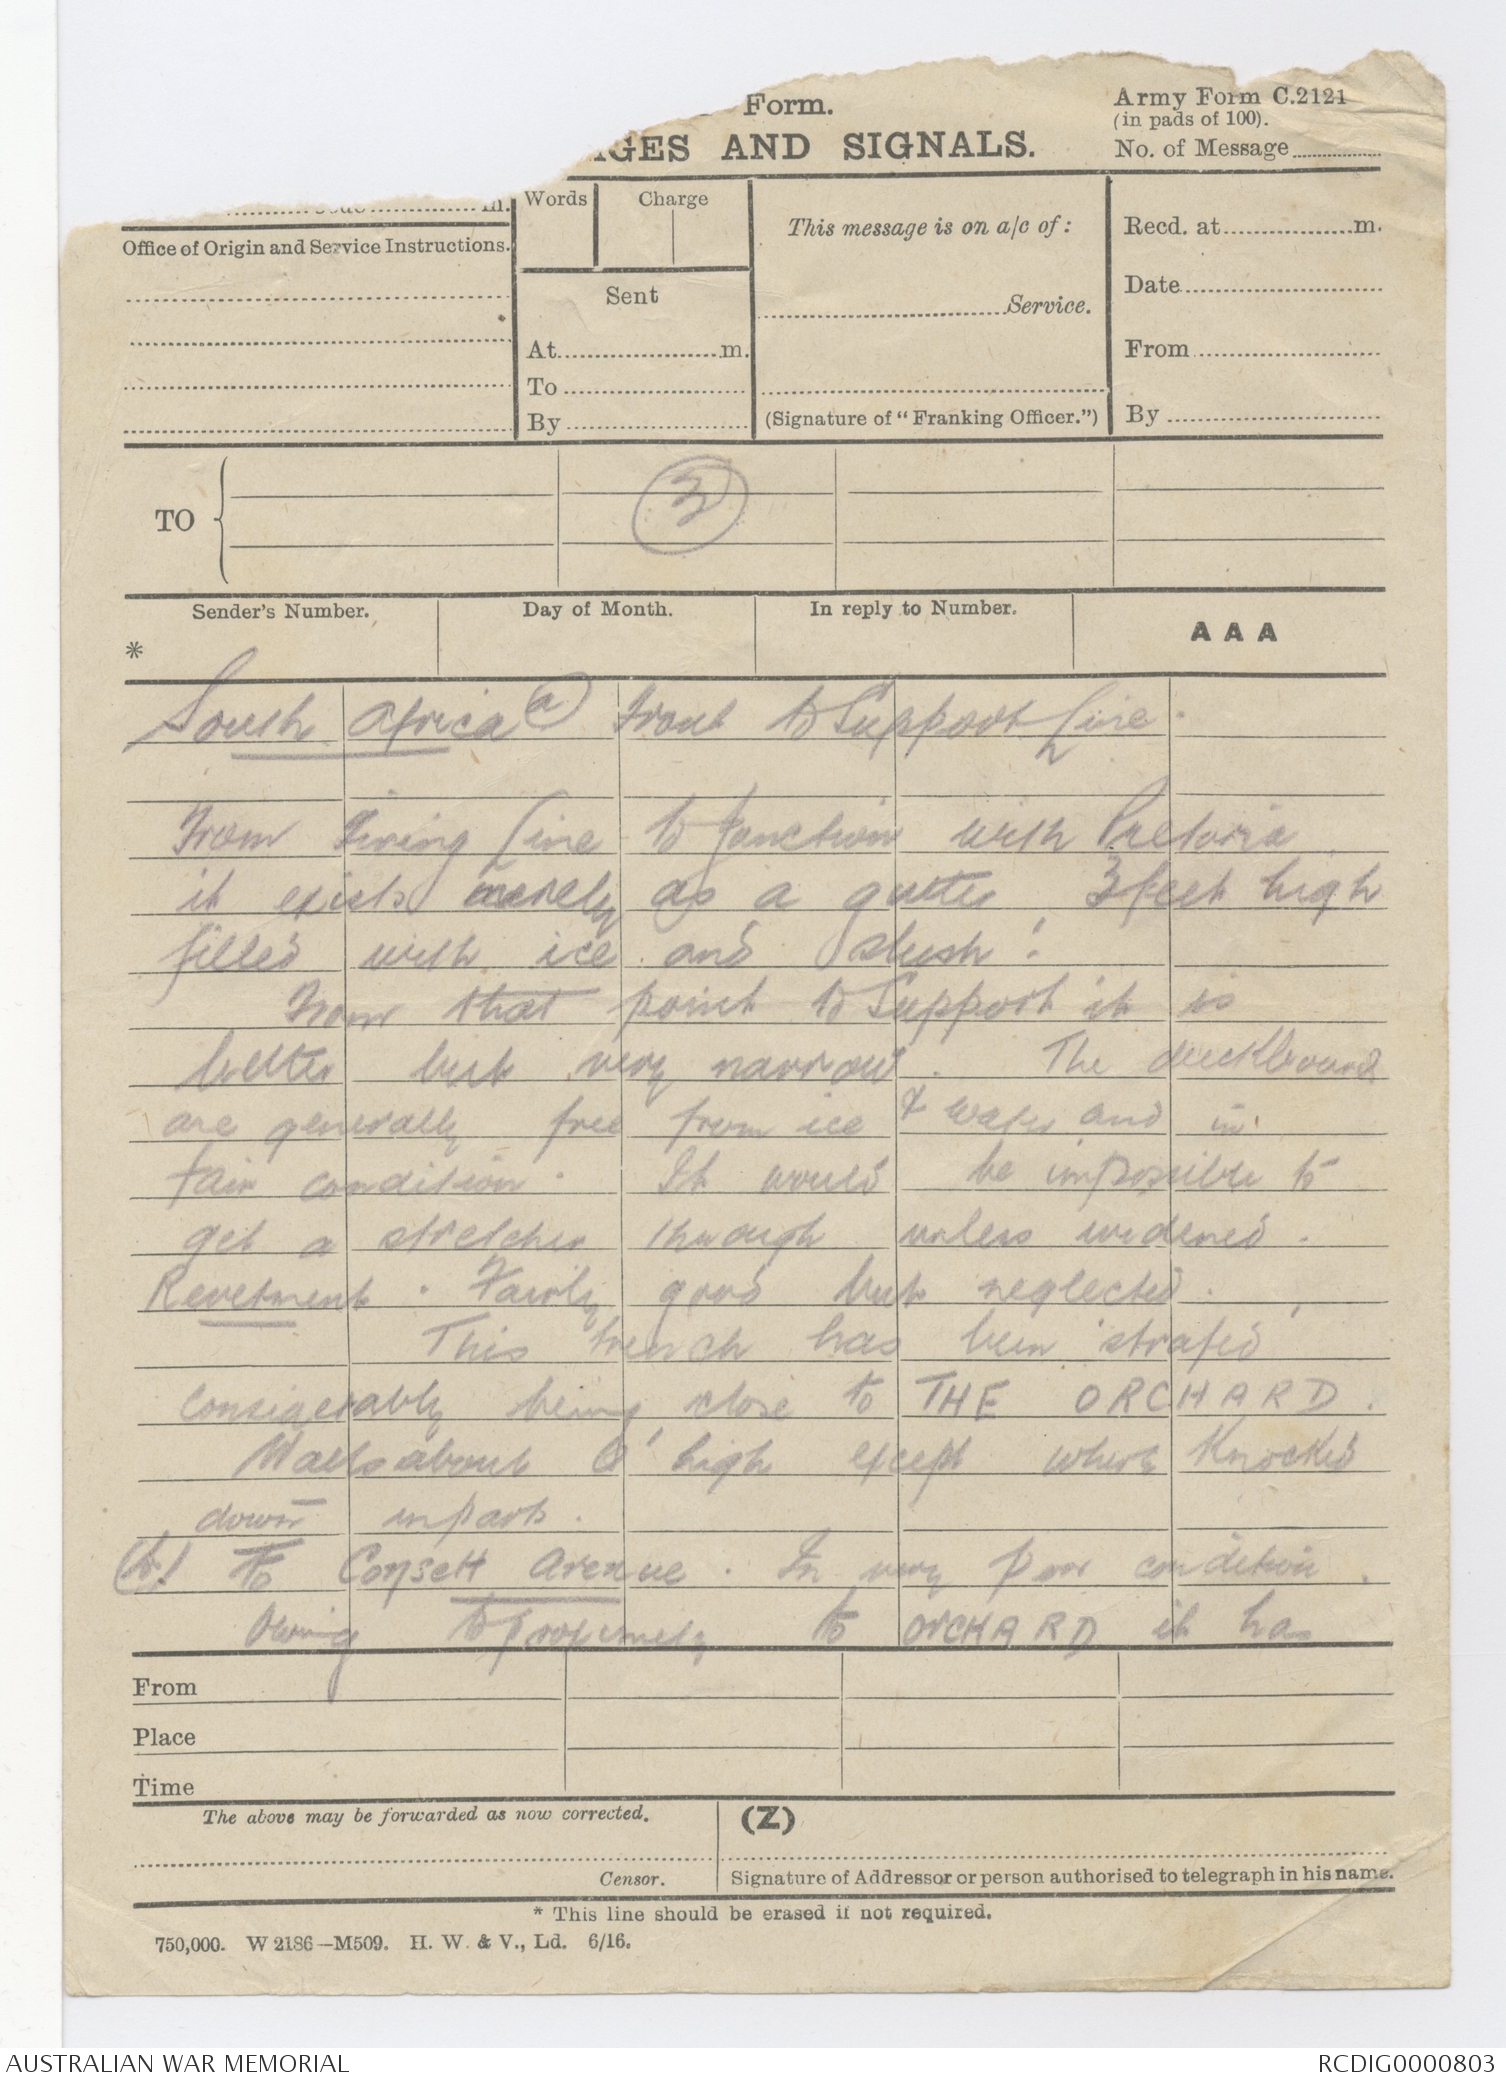 Form.
AGES AND SIGNALS.
Army Form C.2121
(in pads of 100).
No. of Message
m.
Words
Charge
This message is on a/c of:
Recd. at m.
Office of Origin and Service Instructions.
Date
Sent
Service.
At m.
From
To
By
(Signature of "Franking Officer.")
By
TO
3
Sender's Number.
Day of Month.
In reply to Number.
A A A
*
South Africa (a) Front to Support Line.
From Firing Line to junction with Pretoria
it exists merely as a gutter 3 feet high
filled with ice and slush.
From that point to Support it is
better but very narrow. The duckboards
are generally free from ice & water and in
fair condition. It would be impossible to
get a stretcher through unless widened.
Revetment. Fairly good but neglected.
This trench has been 'strafed'
considerably being close to THE ORCHARD.
Walls about 6' high except where knocked
down in parts.
(b) To Consett Avenue. In very poor condition.
Owing to proximity to ORCHARD it has
From
Place
Time
The above may be forwarded as now corrected.
(Z)
Censor.
Signature of Addressor or person authorised to telegraph in his name.
* This line should be erased if not required.
750,000. W 2186—M509. H. W. & V., Ld. 6/16.
AUSTRALIAN WAR MEMORIAL
RCDIG0000803